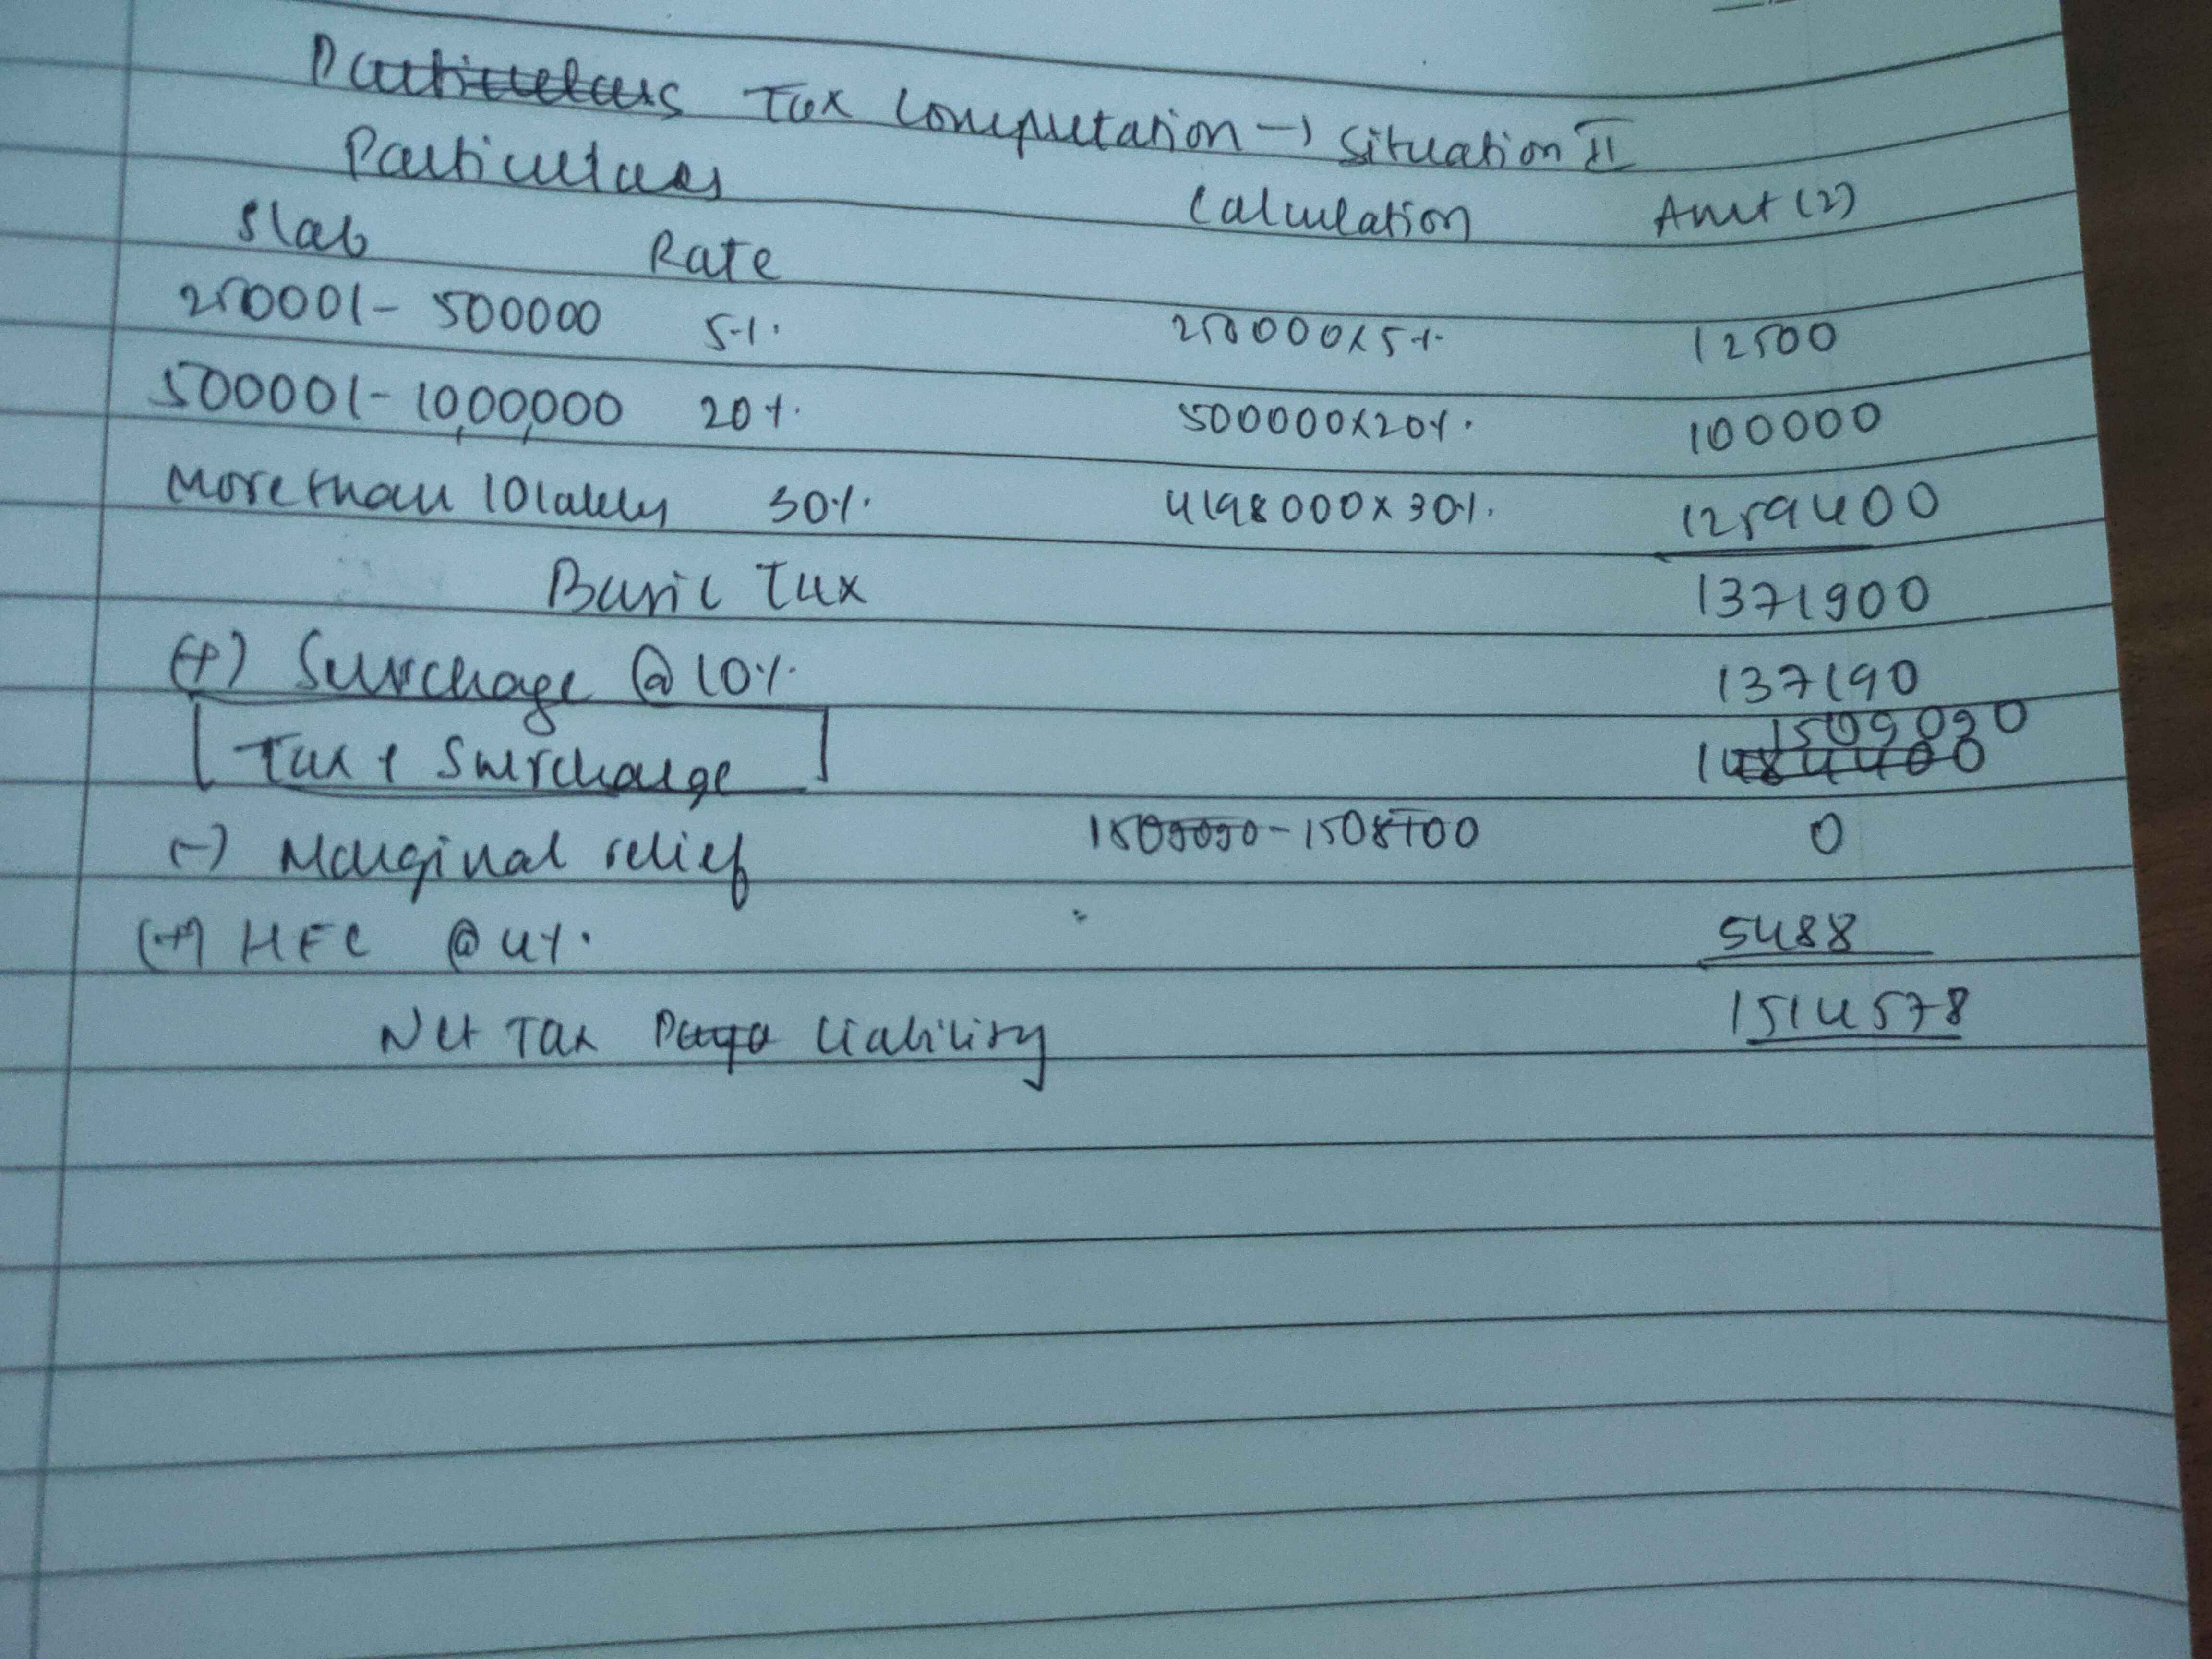 Particulars Tax Computation → Situation II
Particulars Calculation Amt (₹)
Slab Rate
250001 - 500000 5% 250000x5% 12500
500001 - 10,00,000 20% 500000x20% 100000
More than 10 lakhs 30% 4198000 x 30% 1259400
Basic Tax 1371900
(+) Surchage @ 10% 137190
1509090
[Tax + Surcharge] 1484400
(-) Marginal relief 1509090 - 1508100 0
(+) HEC @ 4% 5488
Net Tax liability 1514578